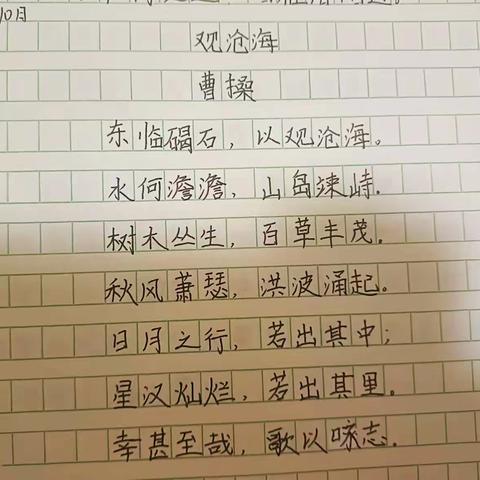 10月
观沧海
曹操
东临碣石，以观沧海。
水何澹澹，山岛竦峙。
树木丛生，百草丰茂。
秋风萧瑟，洪波涌起。
日月之行，若出其中；
星汉灿烂，若出其里。
幸甚至哉，歌以咏志。